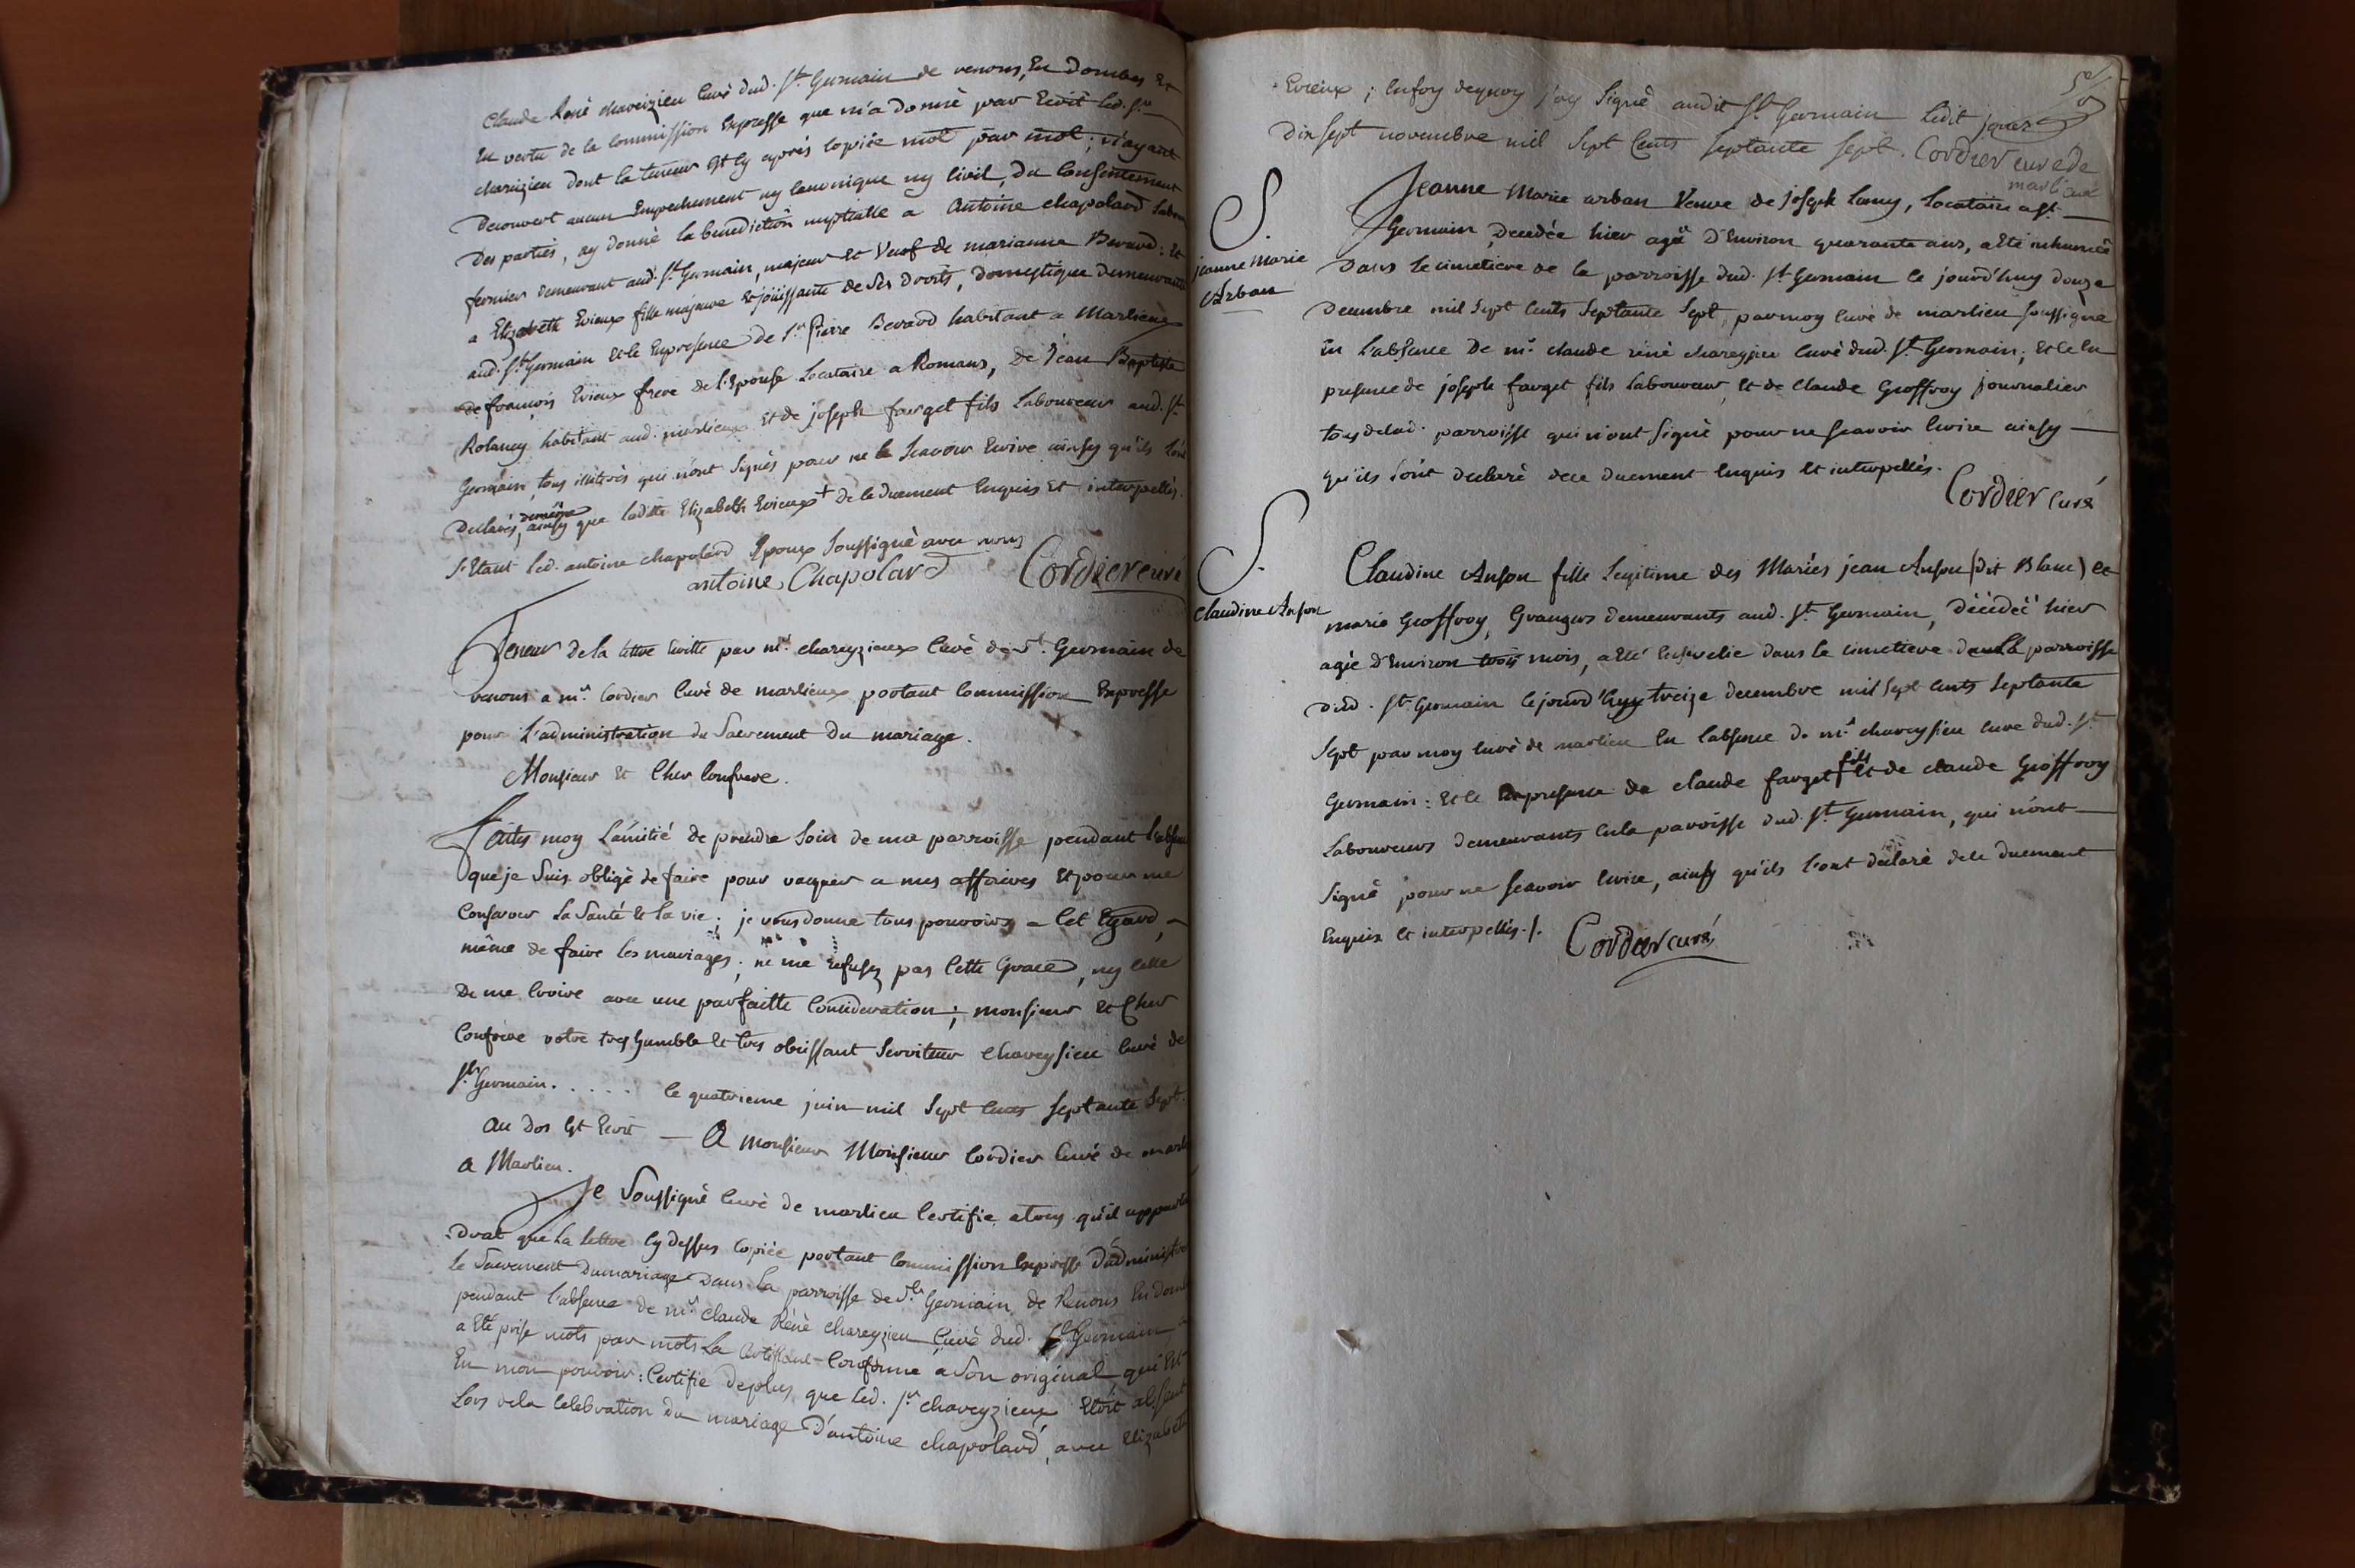 Claude René chareizieu Curé dud. St Germain de renons, En Dombes Et
En vertu de la Commission Expresse que m'a donné par Ecrit led. Sr
chareizieu dont la teneur Est Cy après Copiée mot par mot; n'ayant
Decouvert aucun Empechement ny Canonique ny Civil, du Consentement
Des parties, ay donné la benediction nuptialle a Antoine chapolard
fermier demeurant aud. St Germain, majeur et Veuf de marianne Berard: Et
a Elizabeth Evieux fille majeure Et jouissante de Ses droits, domestique demeurante
aud. St Germain Et le En presence de Sr Pierre Berard habitant a Marlieux
de françois Evieux frere de l'Epouse Locataire a Romans, de Jean Baptiste
Rolancy habitant aud. marlieux Et de joseph farget fils Laboureur aud. St
Germain, tous illiterés qui n'ont Signés pour ne le Scavoir Ecrire ainsy qu'ils l'ont
Declarés, de même ainsy que laditte Elizabeth Evieux + De ce duement Enquis Et interpellés.
S'Etant led. antoine chapolard Epoux Soussigné avec nous
antoine Chapolard Cordier curé
Teneur de la lettre Ecritte par mr. chareyzieux Curé de St. Germain de
renons a mr. Cordier Curé de marlieux portant Commission Expresse
pour L'administration du Sacrement Du mariage.
Monsieur Et Cher Confrere.
Faites moy L'amitié de prendre Soin de ma parroisse pendant L'absence
que je Suis obligé de faire pour vacquer a mes affaires Et pour me
Conserver La Santé Et la vie; je vous donne tous pouvoirs a Cet Egard,
même de faire les mariages; ne me refusez pas Cette Grace, ny Celle
De me Croire avec une parfaitte Consideration; monsieur Et Cher
Confrere votre tres humble Et tres obeissant Serviteur chareysieu Curé de
St. Germain. . . . . . le quatrieme juin mil Sept Cents Septante Sept.
Au dos Est Ecrit — A Monsieur Monsieur Cordier Curé de marlieu
A Marlieu.
Je Soussigné Curé de marlieu Certifie a tous qu'il appartien-
:drat que La lettre Cy dessus Copiée portant Commission Expresse D'administrer
Le Sacrement Du mariage Dans La parroisse de St. Germain de Renons En Dombes
pendant l'absence de mr. Claude René chareyzieu Curé dud. St Germain
a Eté prise mots par mots La Certifiant Conforme a Son original qui Est
En mon pouvoir: Certifie de plus que led. Sr chareyzieux Etoit absent
Lors de la Celebration du mariage D'antoine chapolard, avec Elizabeth
Evieux; En foy de quoy j'ay Signé audit St. Germain Ledit jour
Dix Sept novembre mil Sept Cents Septante Sept. Cordier curé de
marlieux
S.
jeanne Marie
Urban
Jeanne Marie urban Veuve de joseph Lamy, Locataire a St.
Germain, Decedée hier agée D'Environ quarante ans, a Eté inhumée
Dans Le Cimetiere de la parroisse dud. St. Germain le jourd'huy douze
Decembre mil Sept Cents Septante Sept, par moy Curé de marlieu Soussigné
En L'absence De mr. claude réné chareyzieu Curé dud. St. Germain; Et Ce En
presence de joseph farget fils Laboureur, Et de Claude Geoffroy journalier
tous de lad. parroisse qui n'ont Signé pour ne Scavoir Ecrire ainsy
qu'ils L'ont Declaré de ce duement Enquis Et interpellés.
Cordier Curé
S.
Claudine Anson
Claudine Anson fille Legitime des Mariés jean Anson (Dit Blanc) Et
marie Geoffroy, Grangers demeurants aud. St. Germain, Décédée hier
agée D'Environ trois mois, a Eté Ensevelie dans le Cimetiere de la parroisse
Dud. St. Germain Ce jourd'huy treize decembre mil Sept Cents Septante
Sept par moy Curé de marlieu En l'absence de mr. chareysieu Curé dud. St
Germain: Et Ce En presence de claude farget fils Et de claude Geoffroy
Laboureurs demeurants En la paroisse dud. St. Germain, qui n'ont
Signé pour ne Scavoir Ecrire, ainsy qu'ils L'ont declaré de Ce duement
Enquis Et interpellés./. Cordier curé